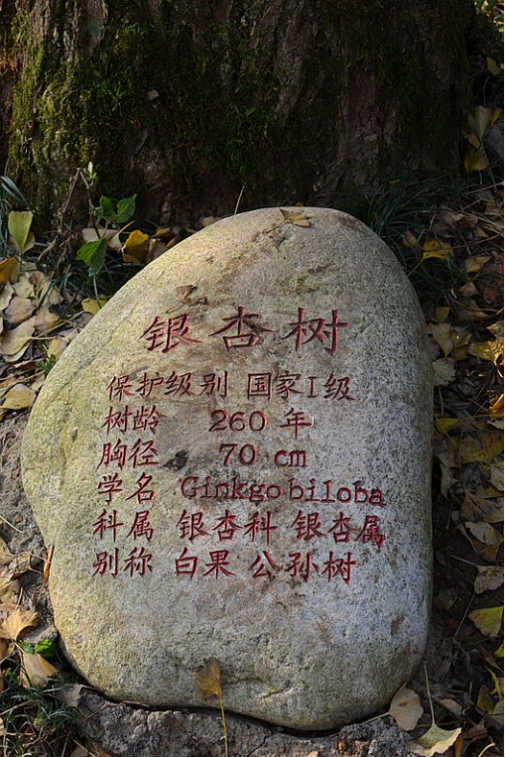 银杏树
保护级别 国家I级
树龄 260 年
胸径 70 cm
学名 Ginkgo biloba
科属 银杏科 银杏属
别称 白果 公孙树